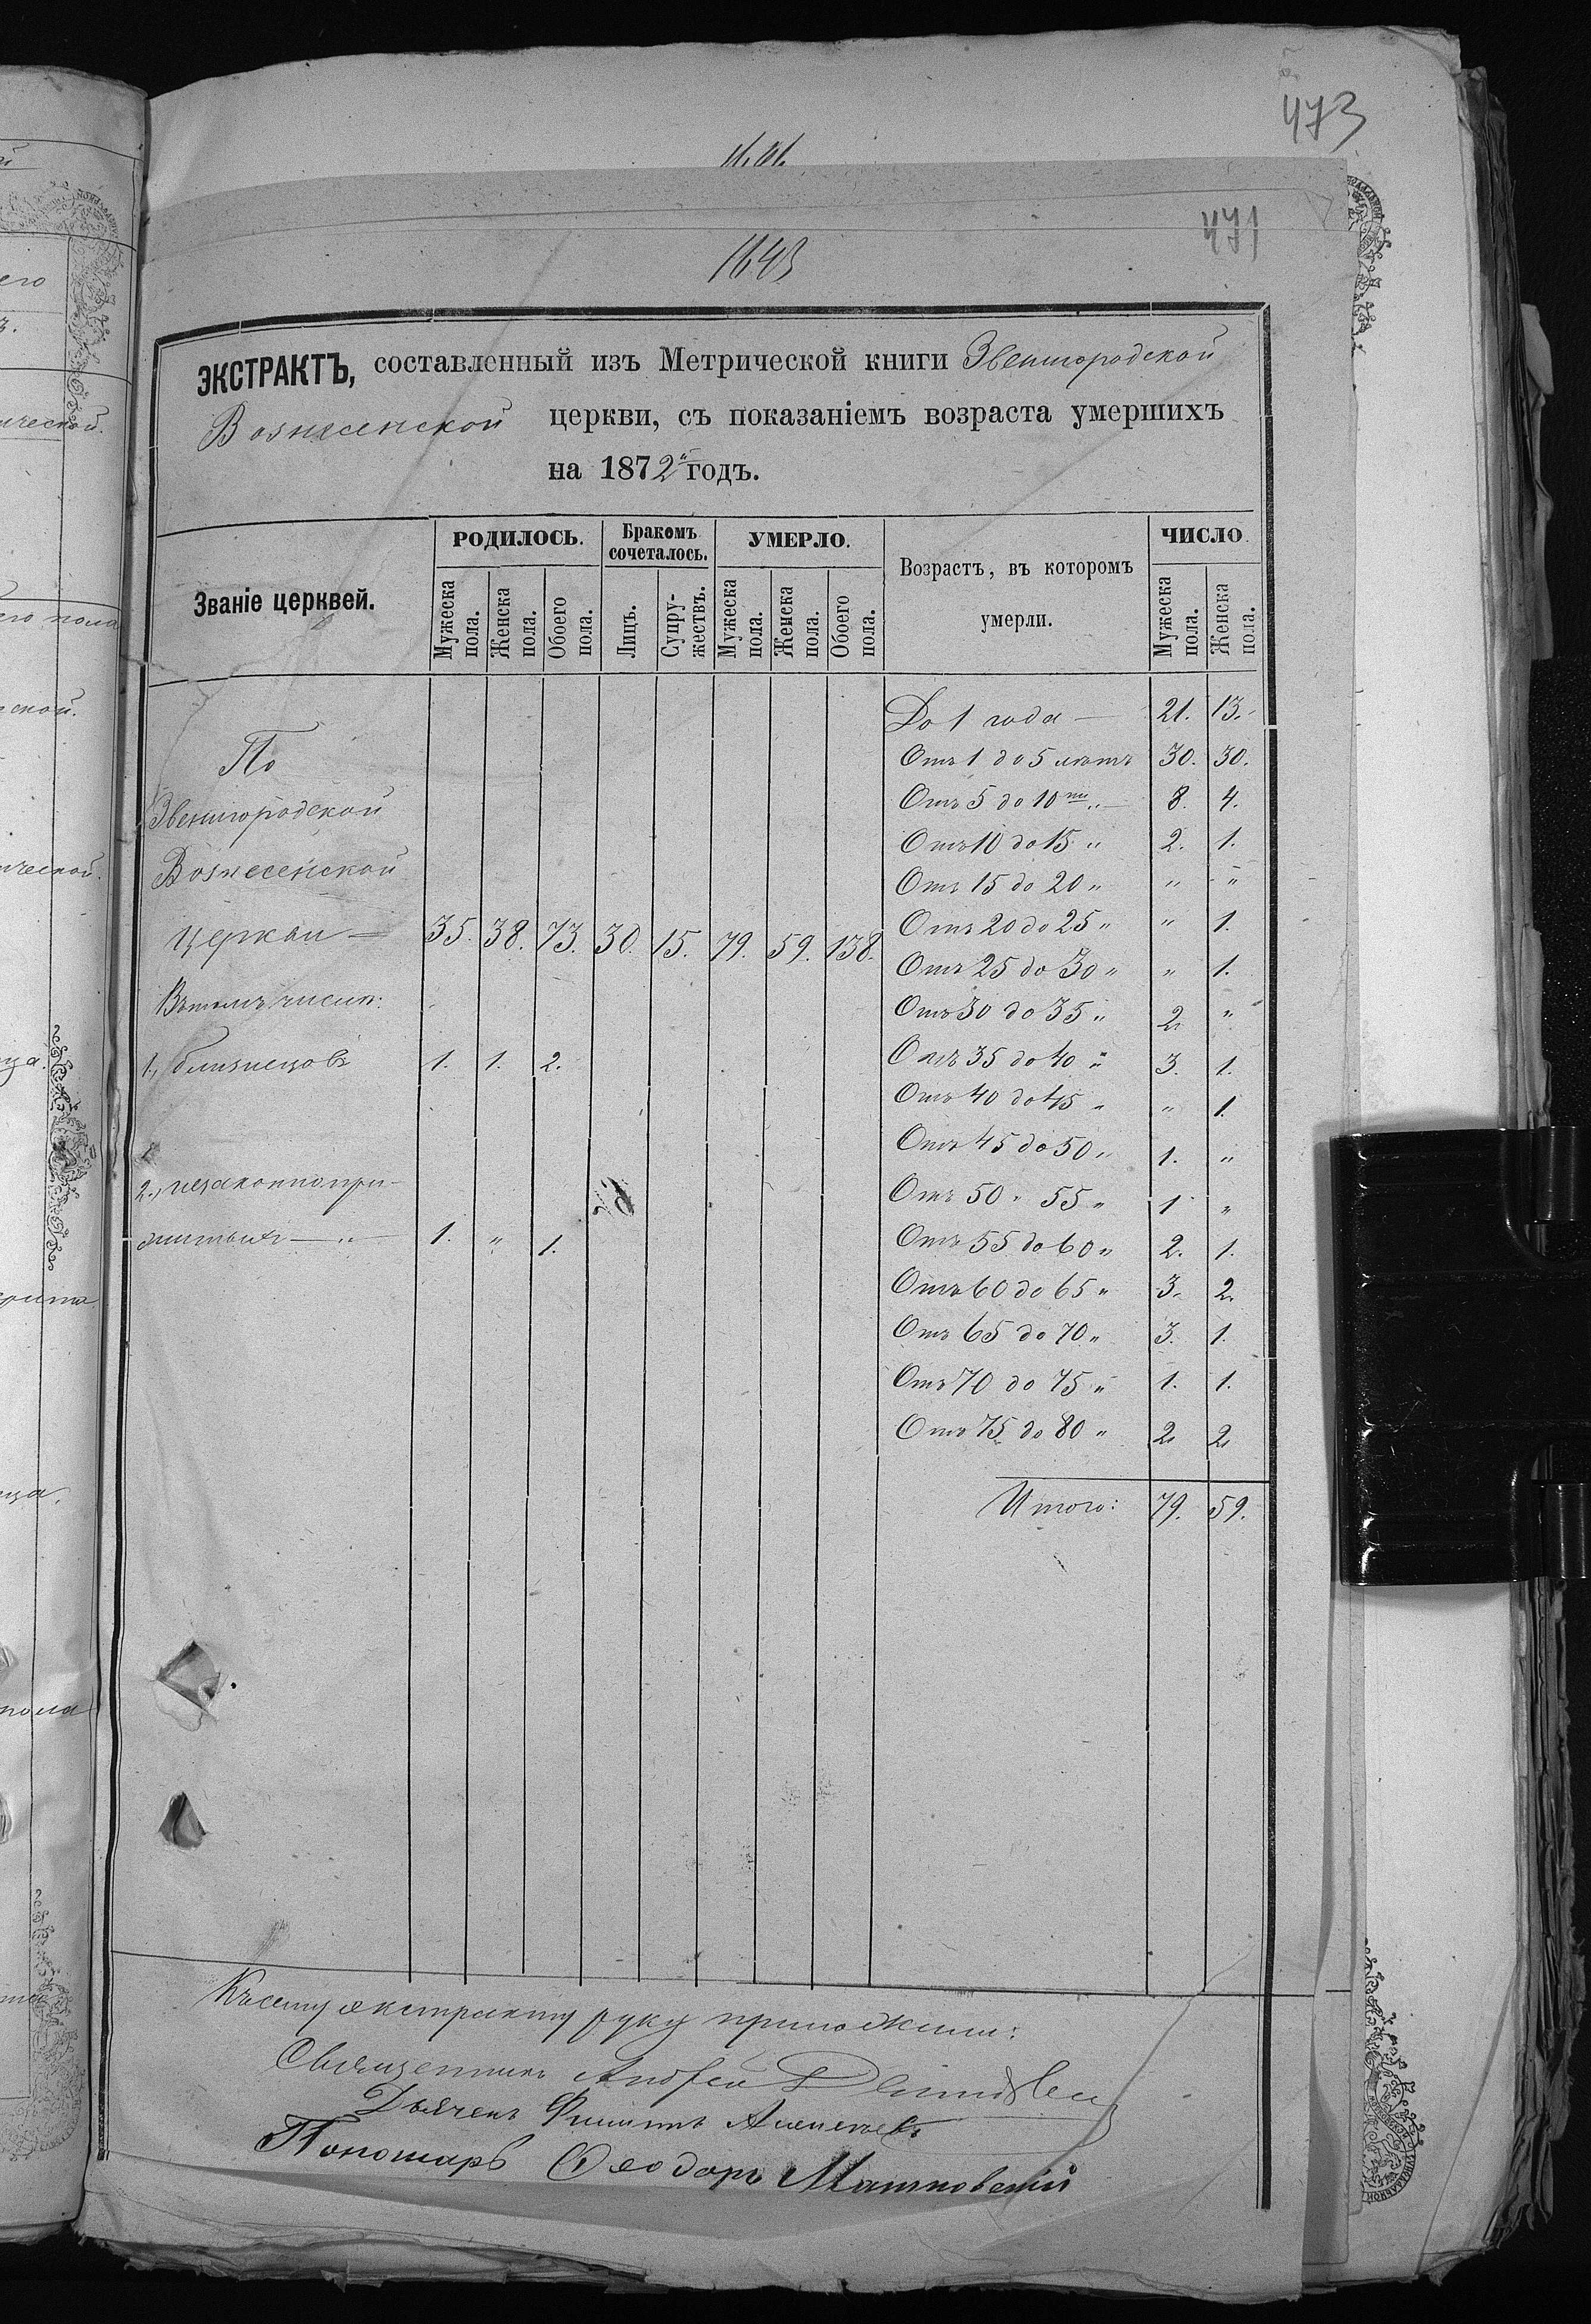 473
471
1643
ЭКСТРАКТЪ, составленный изъ Метрической книги Звенигородской
Вознесенской церкви, съ показаніемъ возраста умершихъ
на 1872й годъ.
Званіе церквей.
РОДИЛОСЬ.
Бракомъ сочеталось.
УМЕРЛО.
Возрастъ, въ которомъ умерли.
ЧИСЛО
Мужеска пола.
Женска пола.
Обоего пола.
Лицъ.
Супружествъ.
Мужеска пола.
Женска пола.
Обоего пола.
Мужеска пола.
Женска пола.
До 1 года — 21. 13.
По
Отъ 1 до 5 лѣтъ 30. 30.
Звенигородской
Отъ 5 до 10ти „ — 8. 4.
Отъ 10 до 15 „ 2. 1.
Вознесенской
Отъ 15 до 20 „ „ „
Церкви — 35. 38. 73. 30. 15. 79. 59. 138.
Отъ 20 до 25 „ „ 1.
Отъ 25 до 30 „ „ 1.
Въ томъ числѣ:
Отъ 30 до 35 „ 2. „
1., близнецовъ 1. 1. 2.
Отъ 35 до 40 „ 3. 1.
Отъ 40 до 45 „ „ 1.
Отъ 45 до 50 „ 1. „
2., незаконнопри-
Отъ 50 „ 55 „ 1 „
житыхъ — „ — 1. „ 1.
Отъ 55 до 60 „ 2. 1.
Отъ 60 до 65 „ 3. 2.
Отъ 65 до 70 „ 3. 1.
Отъ 70 до 75 „ 1. 1.
Отъ 75 до 80 „ 2. 2
Итого: 79. 59.
Къ сему экстракту руку приложили:
Священникъ Андрей
Дьячекъ Филиппъ
Пономарь Ѳеодоръ